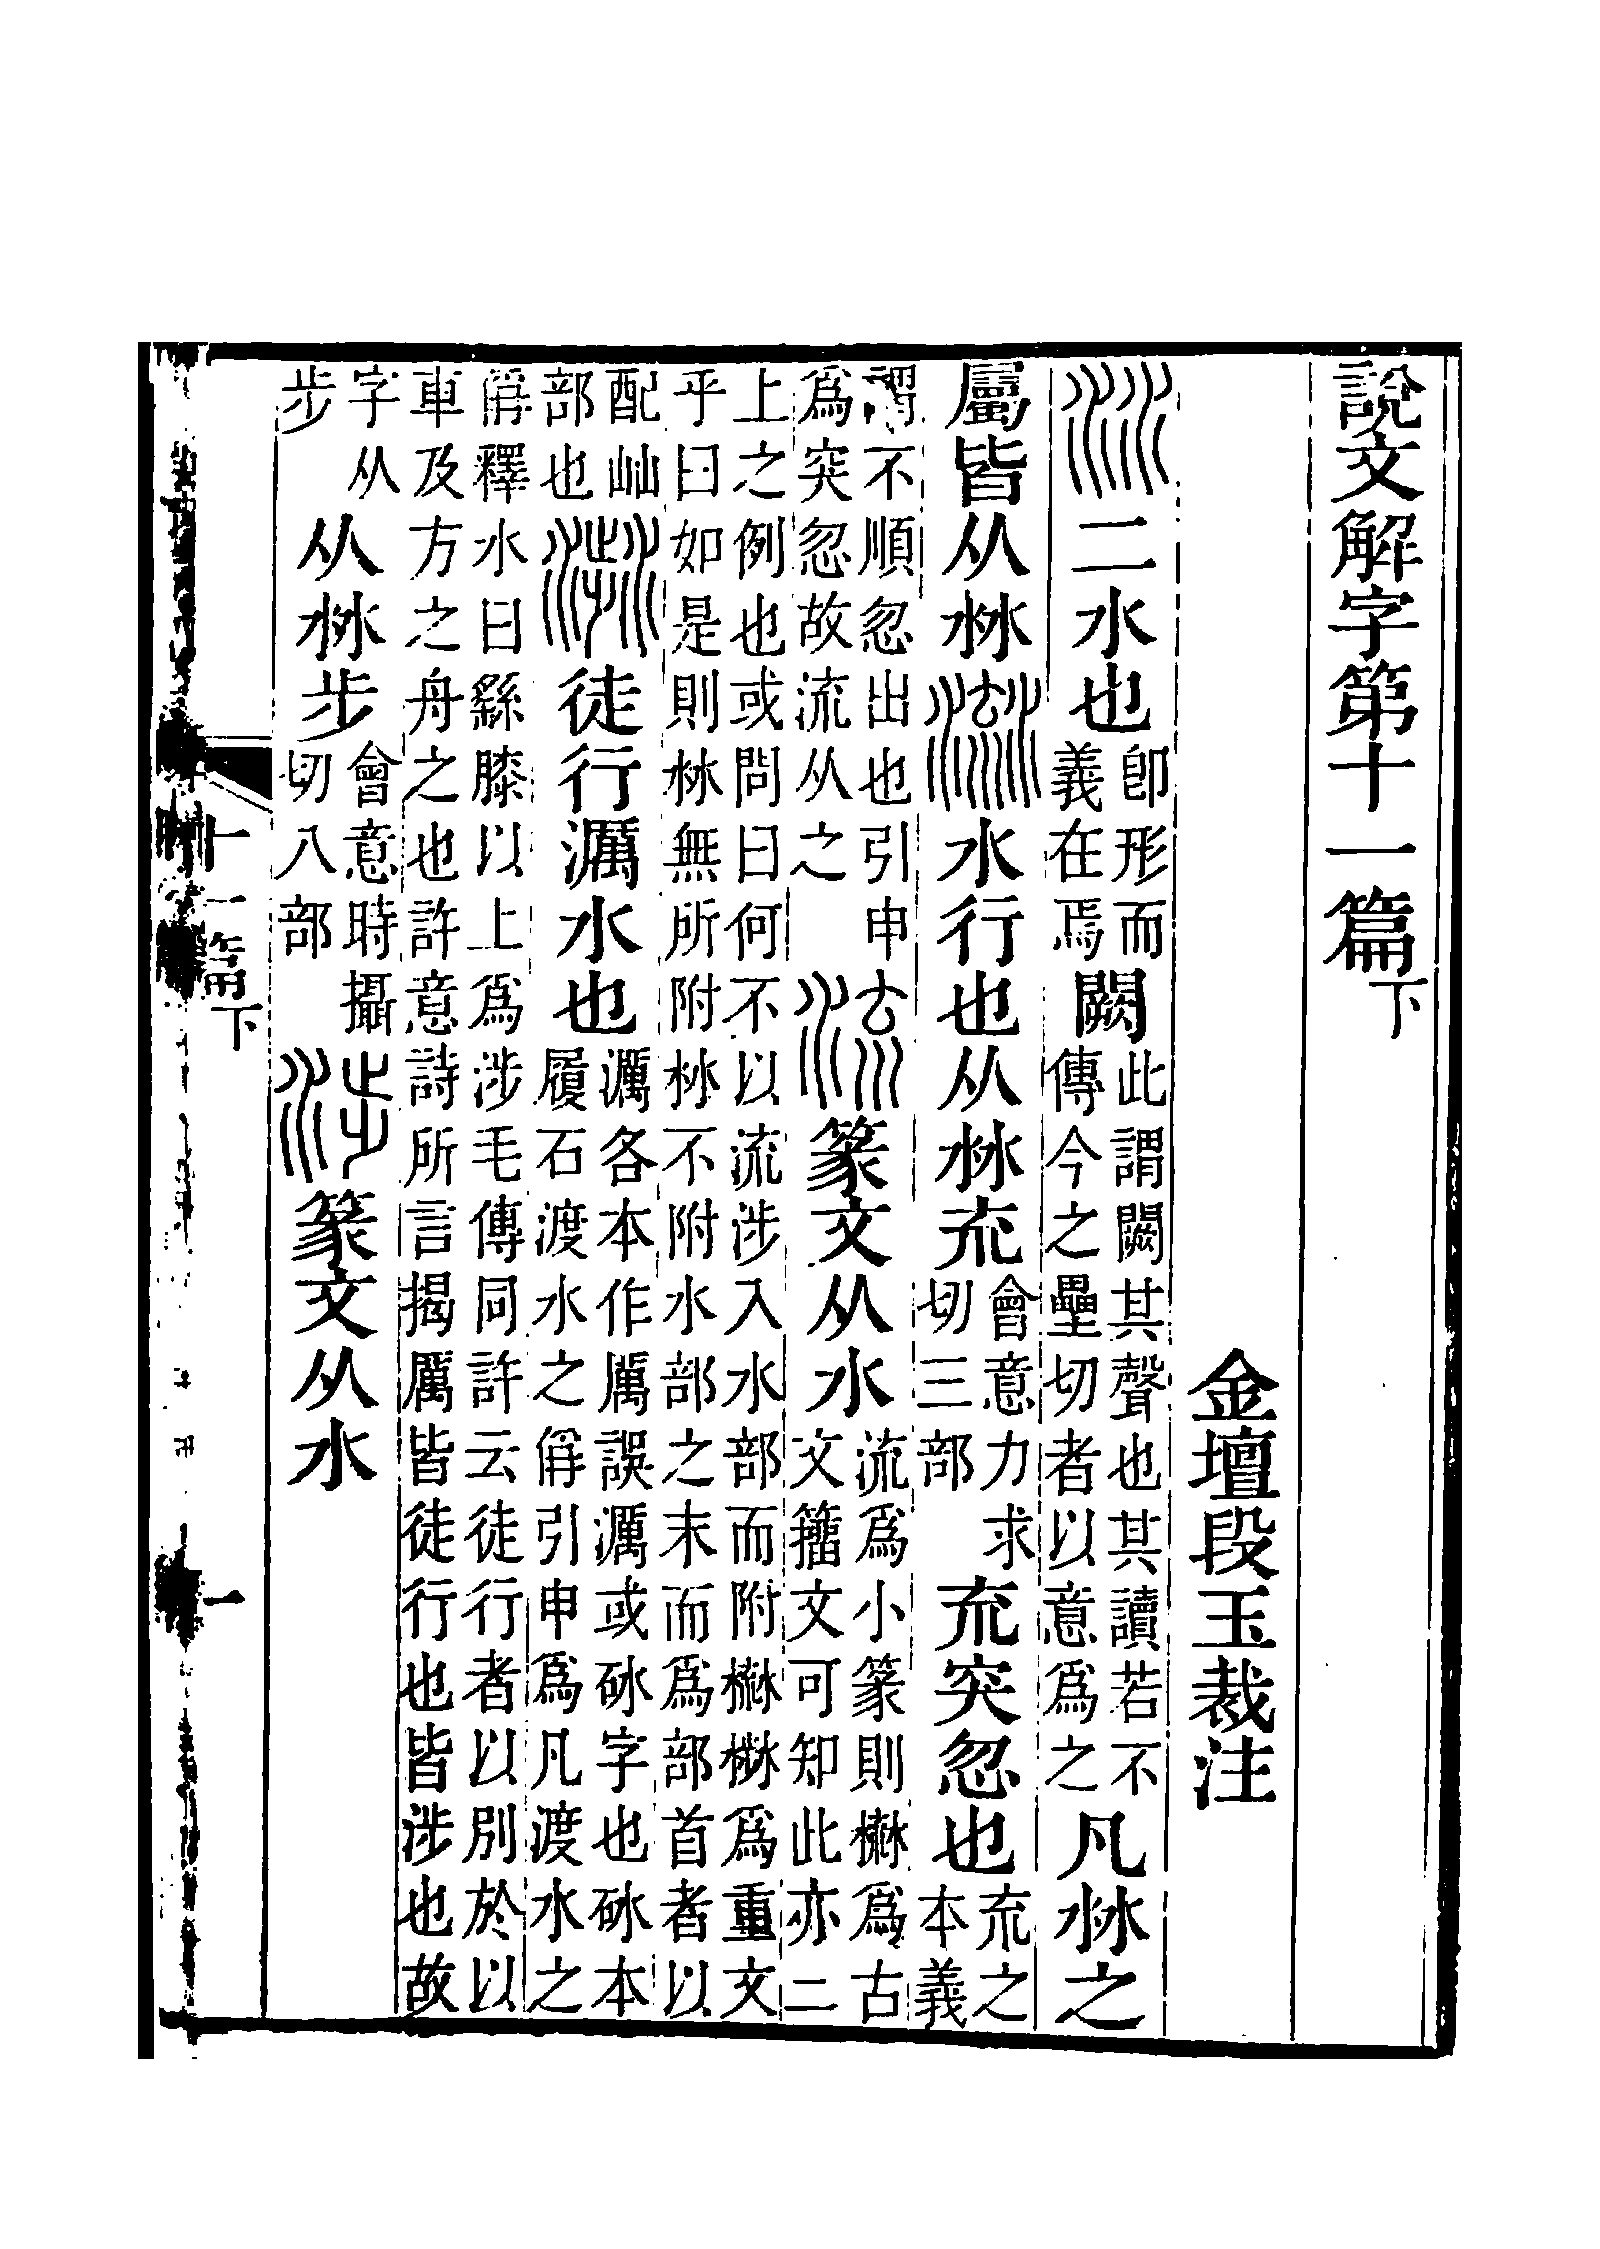 說文解字第十一篇下
金壇段玉裁注
沝二水也卽形而義在焉闕此謂闕其聲也其讀若不傳今之壘切者以意爲之凡沝之
屬皆从沝𣹳水行也从沝㐬會意力求切三部㐬突忽也㐬之本義
謂不順忽出也引申爲突忽故流从之流篆文从水流爲小篆則𣹳爲古文籒文可知此亦二
上之例也或問曰何不以流涉入水部而附𣹳𣻣爲重文乎曰如是則沝無所附沝不附水部之末而爲部首者以
配屾部也𣻣徒行濿水也濿各本作厲誤濿或砅字也砅本履石渡水之偁引申爲凡渡水之
偁釋水曰繇膝以上爲涉毛傳同許云徒行者以別於以車及方之舟之也許意詩所言揭厲皆徒行也皆涉也故
字从步从沝步會意時攝切八部涉篆文从水
十一篇下 一